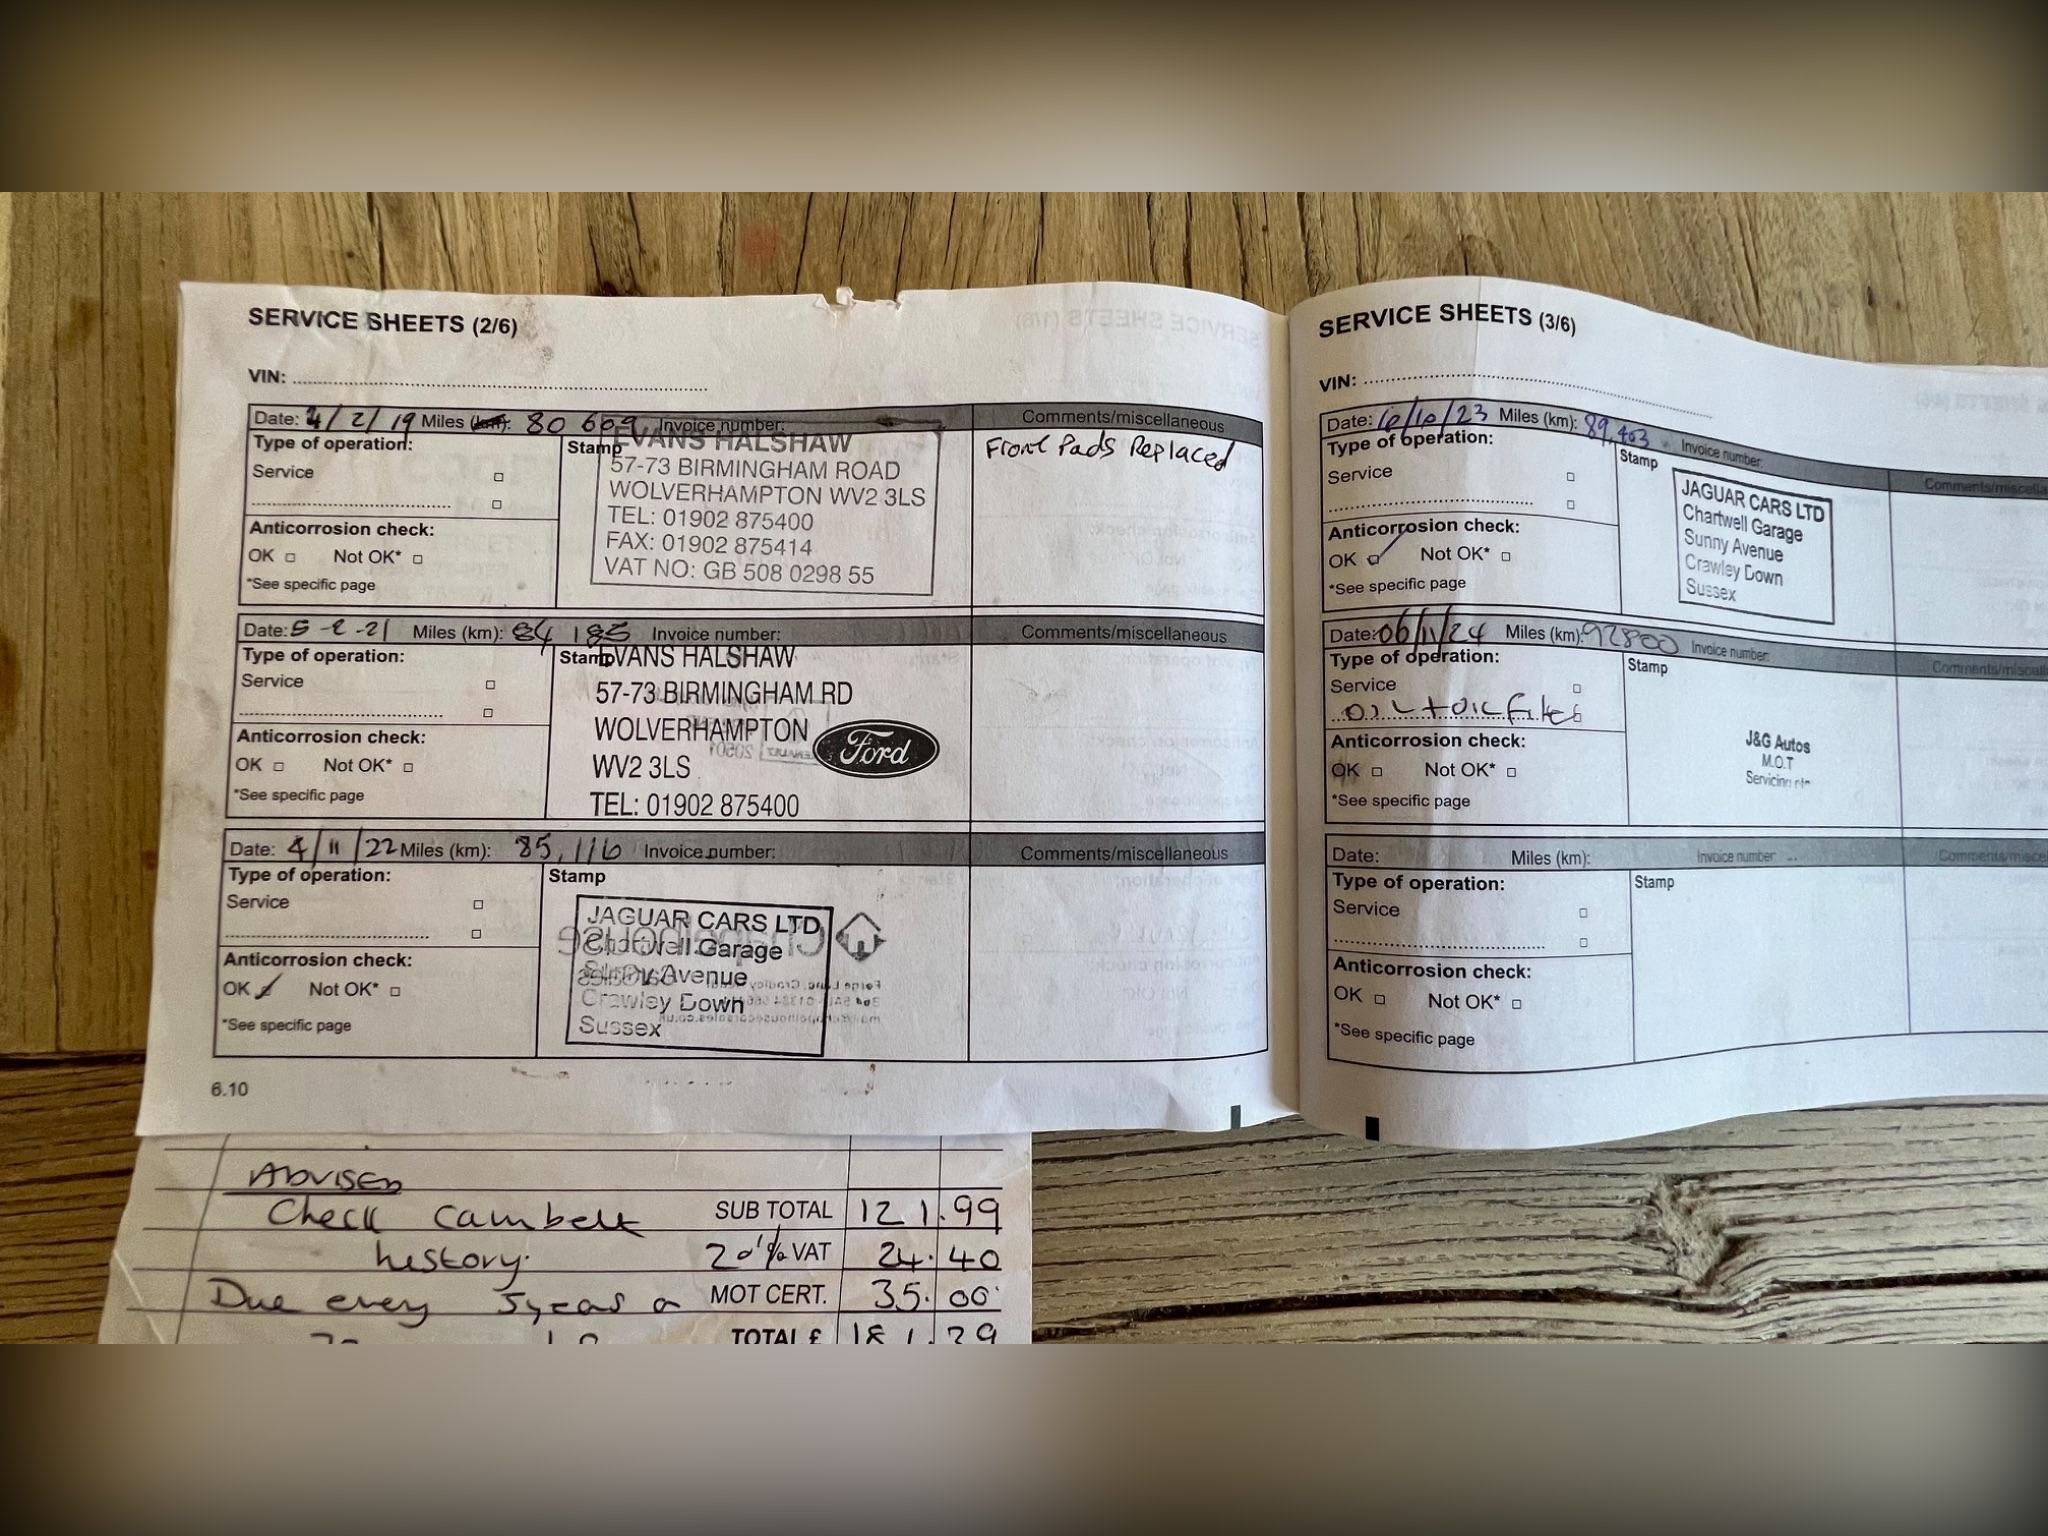 SERVICE SHEETS (2/6)
VIN:
Date: 4/2/19 Miles (km): 80 609 Invoice number:
Comments/miscellaneous
Type of operation:
Service
Anticorrosion check:
OK Not OK*
*See specific page
Stamp
EVANS HALSHAW
57-73 BIRMINGHAM ROAD
WOLVERHAMPTON WV2 3LS
TEL: 01902 875400
FAX: 01902 875414
VAT NO: GB 508 0298 55
Front Pads Replaced
Date: 5-2-21 Miles (km): 84 185 Invoice number:
Comments/miscellaneous
Type of operation:
Service
Anticorrosion check:
OK Not OK*
*See specific page
Stamp
EVANS HALSHAW
57-73 BIRMINGHAM RD
WOLVERHAMPTON
WV2 3LS
TEL: 01902 875400
Ford
Date: 4/11/22 Miles (km): 85,116 Invoice number:
Comments/miscellaneous
Type of operation:
Service
Anticorrosion check:
OK Not OK*
*See specific page
Stamp
JAGUAR CARS LTD
Chartwell Garage
Sunny Avenue
Crawley Down
Sussex
6.10
SERVICE SHEETS (3/6)
VIN:
Date: 6/10/23 Miles (km): 89,403 Invoice number:
Type of operation:
Service
Anticorrosion check:
OK Not OK*
*See specific page
Stamp
JAGUAR CARS LTD
Chartwell Garage
Sunny Avenue
Crawley Down
Sussex
Date: 06/11/24 Miles (km): 92800 Invoice number:
Type of operation:
Service
OIL + OIL Filter
Anticorrosion check:
OK Not OK*
*See specific page
Stamp
J&G Autos
M.O.T
Servicing
Date: Miles (km): Invoice number
Type of operation:
Service
Anticorrosion check:
OK Not OK*
*See specific page
Stamp
ADVISED
Check cambelt
history.
Due every 5years o
SUB TOTAL 121.99
20% VAT 24.40
MOT CERT. 35.00
TOTAL £ 181.39